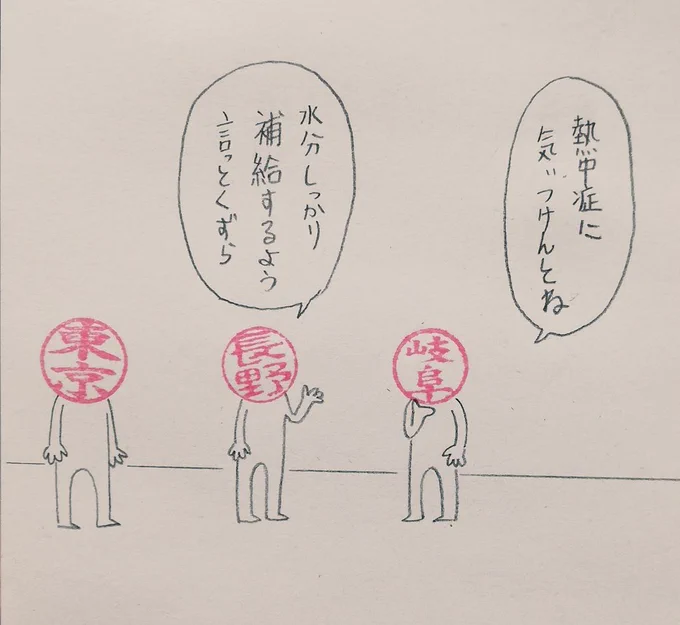 熱中症に
気ぃつけんとね
水分しっかり
補給するよう
言っとくずら
岐阜
長野
東京